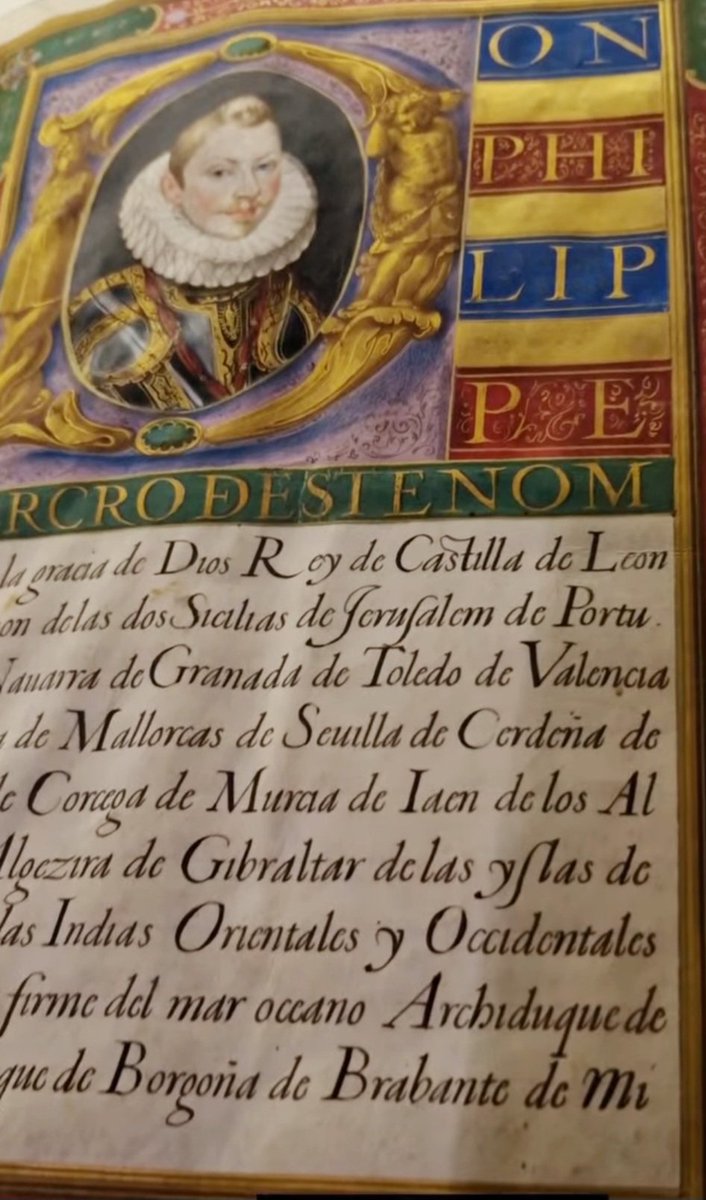 ON
PHI
LIP
PE
RCRO DESTE NOM
la gracia de Dios Rey de Castilla de Leon
on delas dos Sicilias de Jerusalem de Portu.
Nauarra de Granada de Toledo de Valencia
de Mallorcas de Seuilla de Cerdeña de
de Corcega de Murcia de Iaen de los Al
Algezira de Gibraltar de las yslas de
las Indias Orientales y Occidentales
firme del mar oceano Archiduque de
que de Borgoña de Brabante de Mi